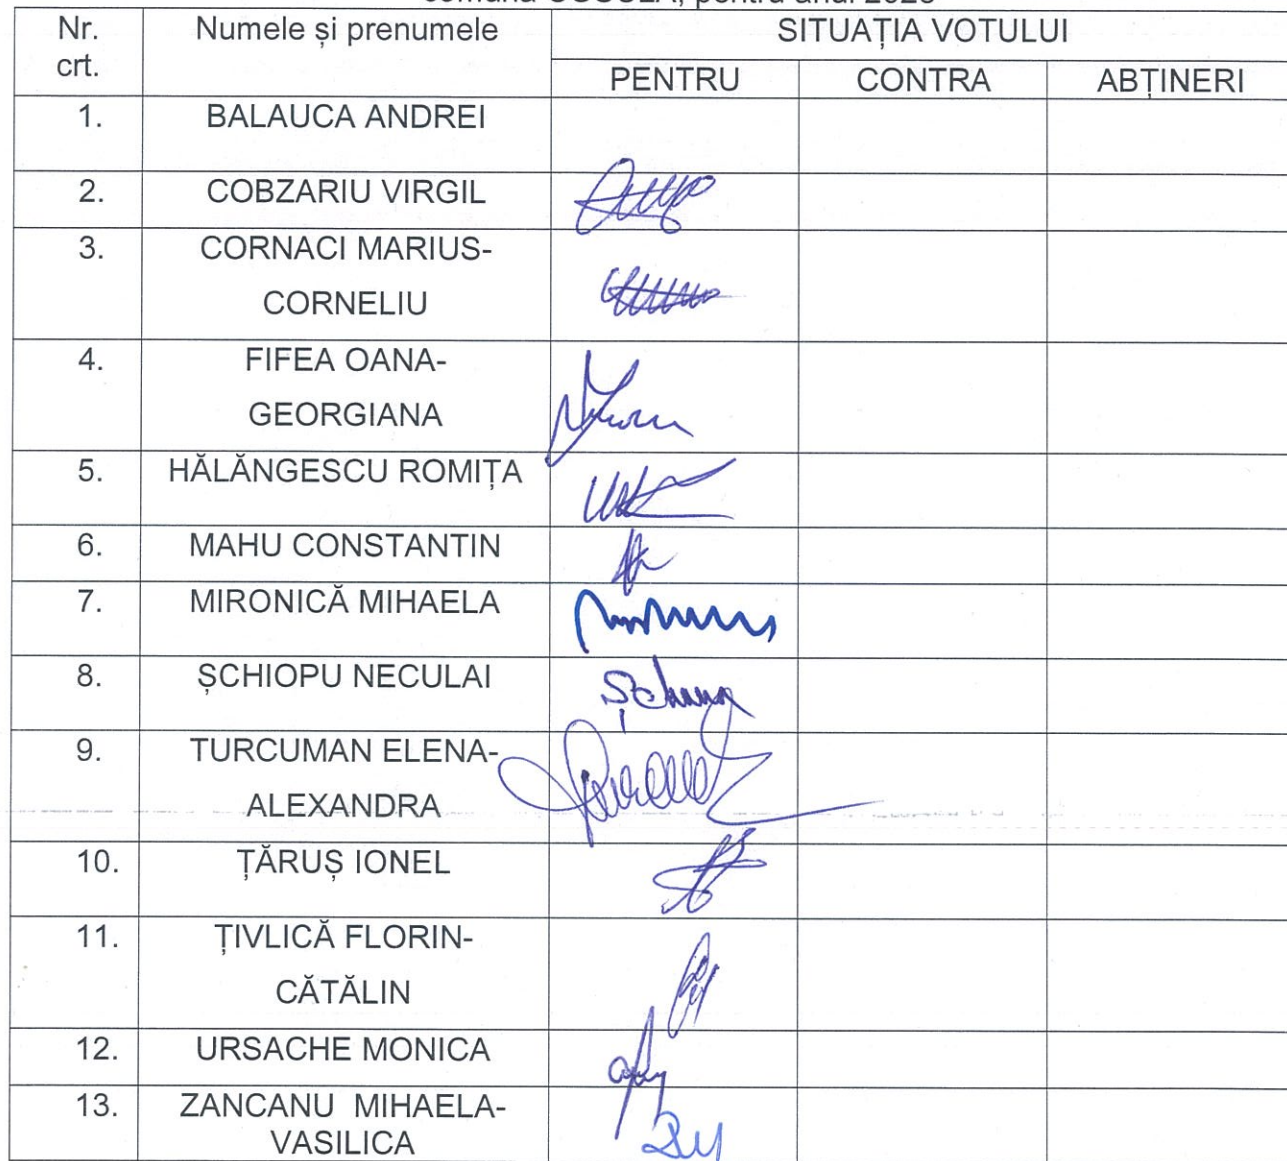 pentru anul
Nr. crt. Numele și prenumele SITUAȚIA VOTULUI
PENTRU CONTRA ABȚINERI
1. BALAUCA ANDREI
2. COBZARIU VIRGIL
3. CORNACI MARIUS-
CORNELIU
4. FIFEA OANA-
GEORGIANA
5. HĂLĂNGESCU ROMIȚA
6. MAHU CONSTANTIN
7. MIRONICĂ MIHAELA
8. ȘCHIOPU NECULAI
9. TURCUMAN ELENA-
ALEXANDRA
10. ȚĂRUȘ IONEL
11. ȚIVLICĂ FLORIN-
CĂTĂLIN
12. URSACHE MONICA
13. ZANCANU MIHAELA-
VASILICA